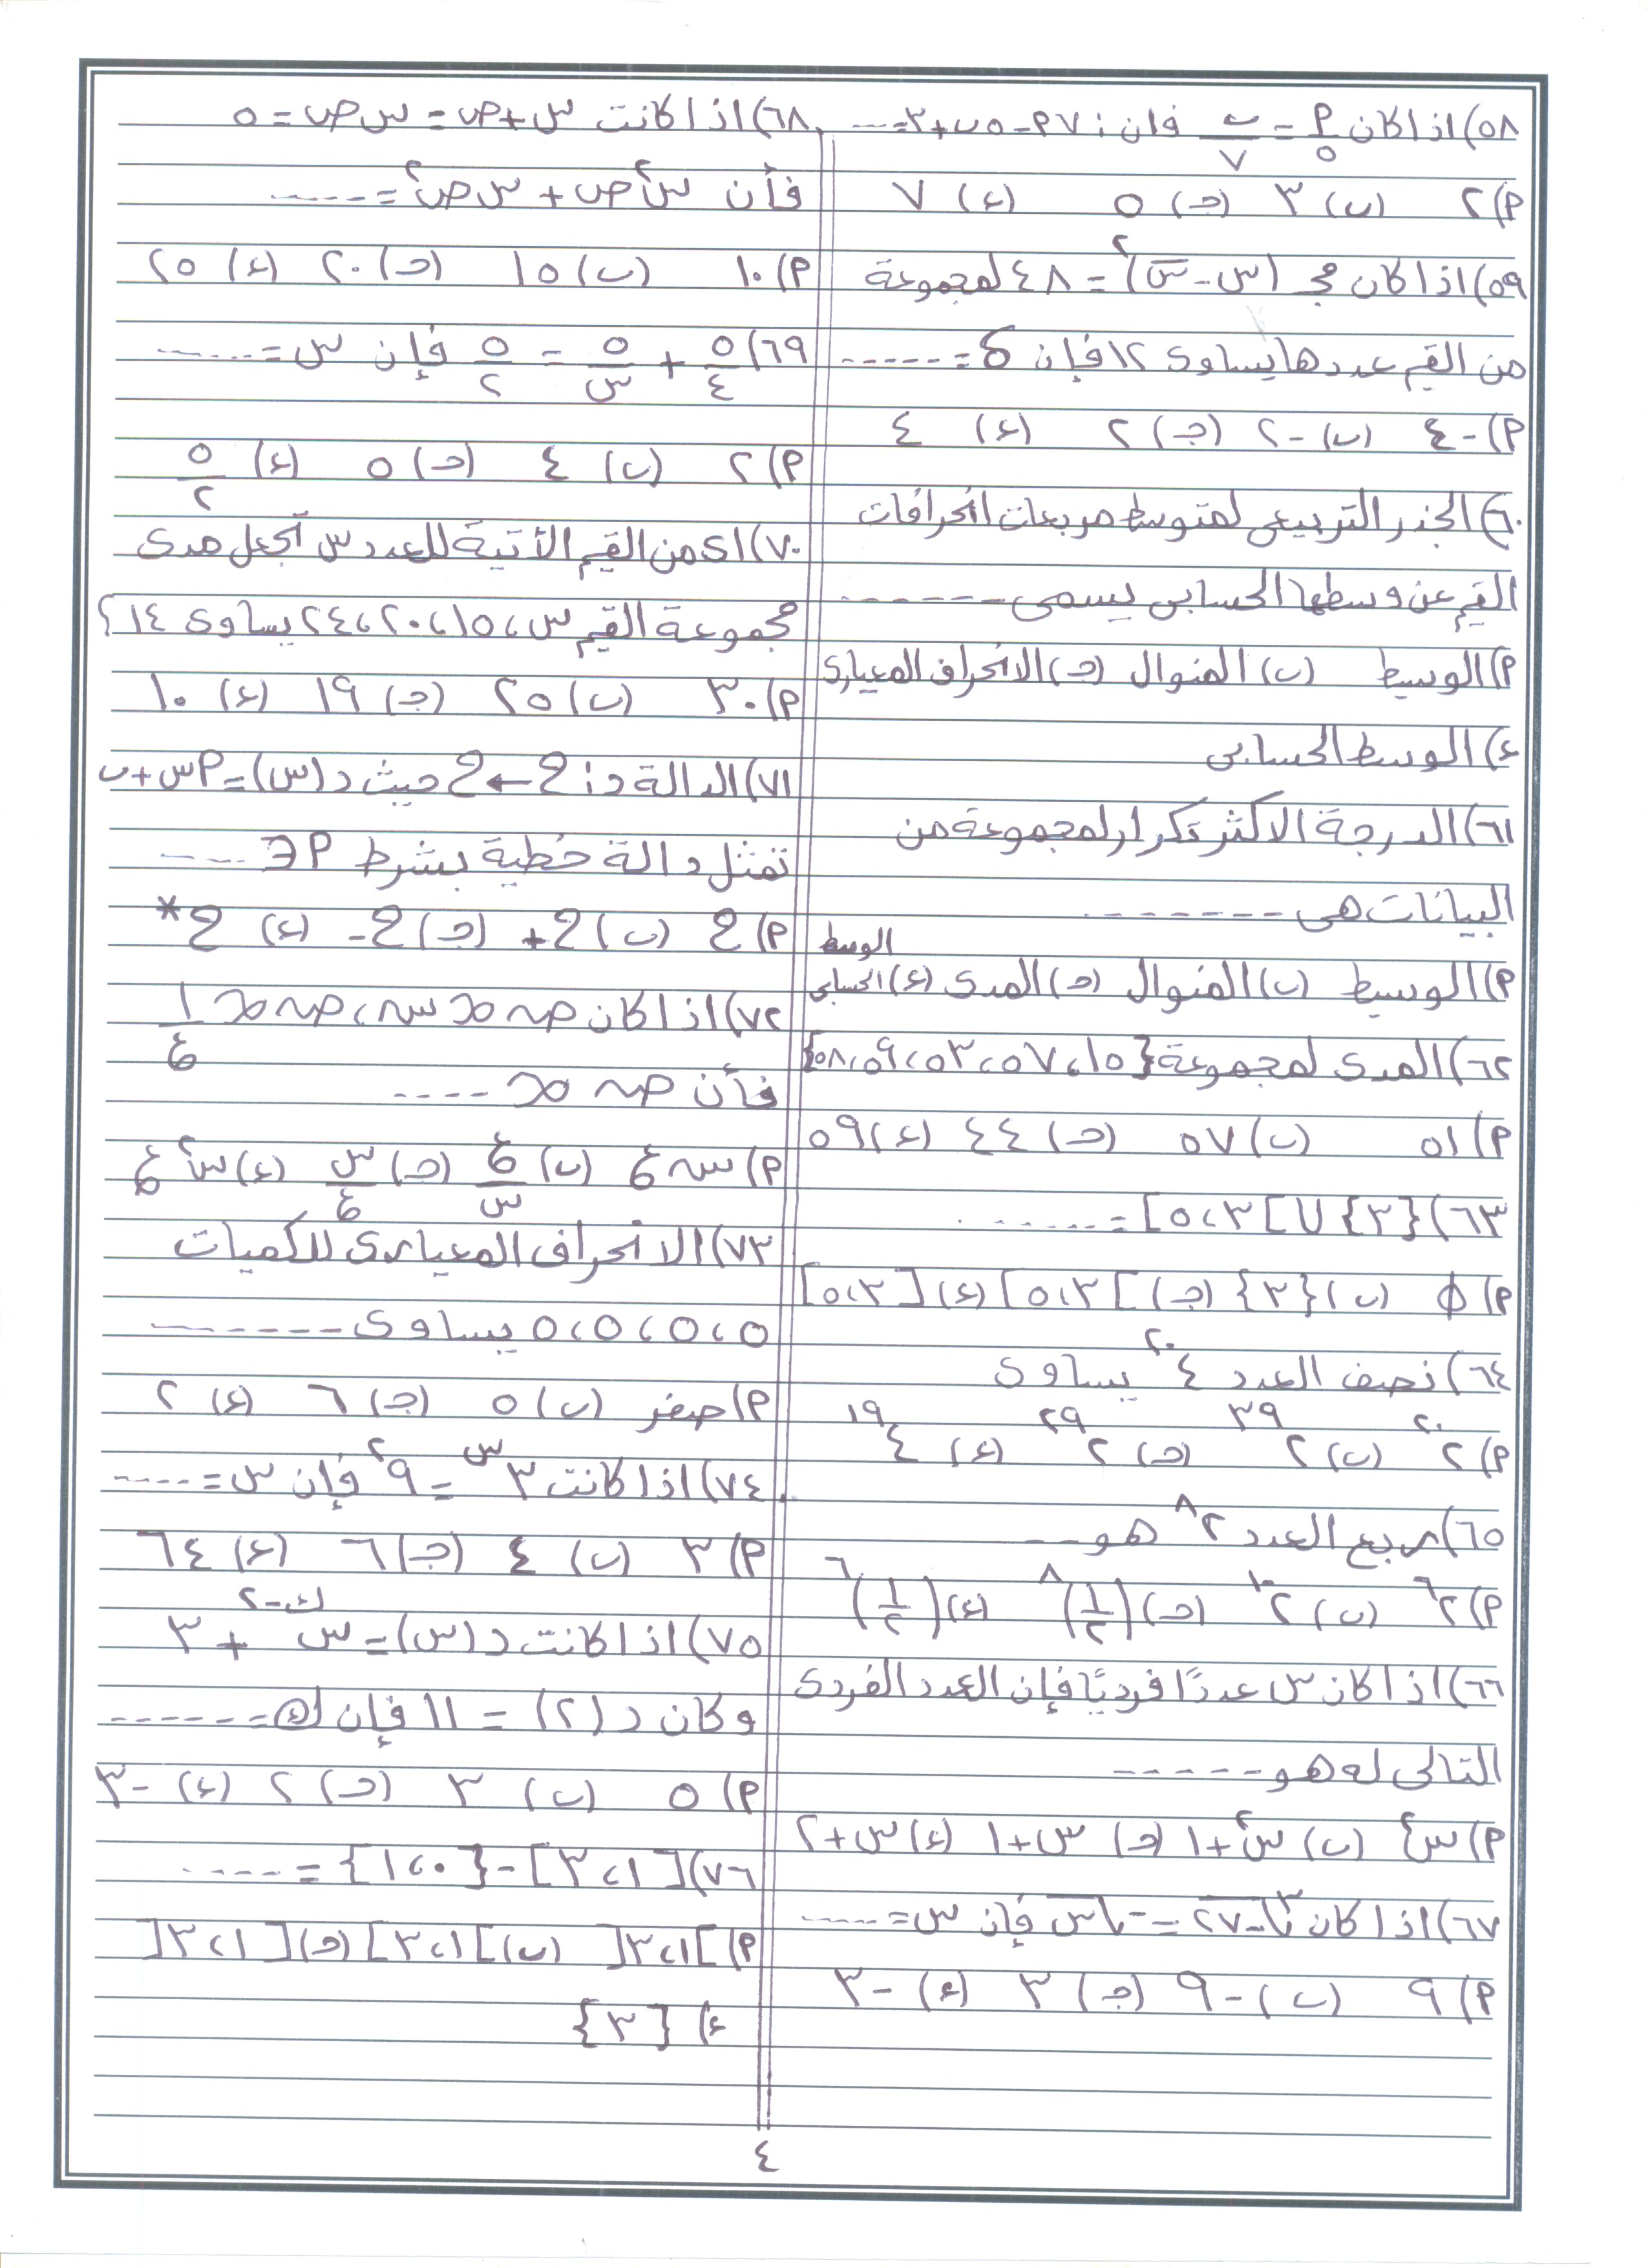 ٥٨) اذا كان أ/٥ = ب/٧ فان : ٧أ - ٥ب + ٣ = ----
أ) ٢ (ب) ٣ (ج) ٥ (د) ٧
٥٩) اذا كان مجـ (س - س̄)² = ٤٨ لمجموعة
من القيم عددها يساوى ١٢ فإن σ = ------
أ) -٤ (ب) -٢ (ج) ٢ (د) ٤
٦٠) الجذر التربيعى لمتوسط مربعات انحرافات
القيم عن وسطها الحسابى يسمى ------
أ) الوسيط (ب) المنوال (ج) الانحراف المعيارى
د) الوسط الحسابى
٦١) الدرجة الاكثر تكرار لمجموعة من
البيانات هى -------
أ) الوسيط (ب) المنوال (ج) المدى (د) الوسط الحسابى
٦٢) المدى لمجموعة {١٥، ٥٧، ٥٣، ٥٩، ٥٨}
أ) ٥١ (ب) ٥٧ (ج) ٤٤ (د) ٥٩
٦٣) {٣} ∪ ]٣، ٥] = ------
أ) φ (ب) {٣} (ج) ]٣، ٥] (د) [٣، ٥]
٦٤) نصف العدد ٤²٠ يساوى
أ) ٢²٠ (ب) ٢³⁹ (ج) ٢²⁹ (د) ٤¹⁹
٦٥) ربع العدد ٢⁸ هو ---
أ) ٢⁶ (ب) ٢¹٠ (ج) (١/٢)⁸ (د) (١/٢)⁶
٦٦) اذا كان س عددًا فرديًا فإن العدد الفردى
التالى له هو -----
أ) س² (ب) س²+١ (ج) س+١ (د) س+٢
٦٧) اذا كان ∛-٢٧ = -√س فإن س = ----
أ) ٩ (ب) -٩ (ج) ٣ (د) -٣
٦٨) اذا كانت س + ص = س ص = ٥
فأن س²ص + س ص² = -----
أ) ١٠ (ب) ١٥ (ج) ٢٠ (د) ٢٥
٦٩) ٥/٤ + ٥/س = ٥/٢ فإن س = -----
أ) ٢ (ب) ٤ (ج) ٥ (د) ٥/٢
٧٠) اى من القيم الأتية للعدد س تجعل مدى
مجموعة القيم س، ١٥، ٢٠، ٢٤ يساوى ١٤ ؟
أ) ٣٠ (ب) ٢٥ (ج) ١٩ (د) ١٠
٧١) الدالة د : ح ← ح حيث د(س) = أس + ب
تمثل دالة خطية بشرط أ ∈ ----
أ) ح (ب) ح+ (ج) ح- (د) ح*
٧٢) اذا كان ص ∝ س، ص ∝ ١/ع
فأن ص ∝ ----
أ) س ع (ب) ع/س (ج) س/ع (د) س² ع
٧٣) الانحراف المعيارى للكميات
٥، ٥، ٥، ٥ يساوى ------
أ) صفر (ب) ٥ (ج) ٦ (د) ٢
٧٤) اذا كانت ٣^س = ٩² فإن س = -----
أ) ٣ (ب) ٤ (ج) ٦ (د) ٦٤
٧٥) اذا كانت د(س) = س^(ك-٢) + ٣
وكان د(٢) = ١١ فإن ك = ------
أ) ٥ (ب) ٣ (ج) ٢ (د) -٣
٧٦) [١، ٣] - {١، ٠} = ----
أ) [١، ٣[ (ب) ]١، ٣] (ج) [١، ٣]
د) {٣}
٤